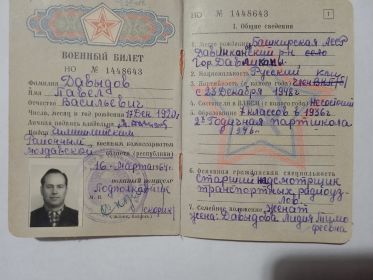 ВОЕННЫЙ БИЛЕТ
НО № 1448643
Фамилия Давыдов
Имя Павел
Отчество Васильевич
Число, месяц и год рождения Дек. 1920г.
Личная подпись владельца
Выдан
Районным военным комиссариатом
Молдавской области (республики)
16 марта 1964г.
Подполковник
НО № 1448643
1
I. Общие сведения
1. Место рождения Башкирская АССР
р-н село
Гор Давлеканы
2. Национальность Русский
3. Партийность (с какого года) член
с 23 Декабря 1948г.
4. Состоит ли в ВЛКСМ (с какого года) Не состоит
5. Образование 7 классов в 1936г
2х годичная партшкола
в
6. Основная гражданская специальность
Старший надсмотрщик
транспортных радиоуз-
лов.
7. Семейное положение Женат
жена: Давыдова Лидия Тимо-
феевна